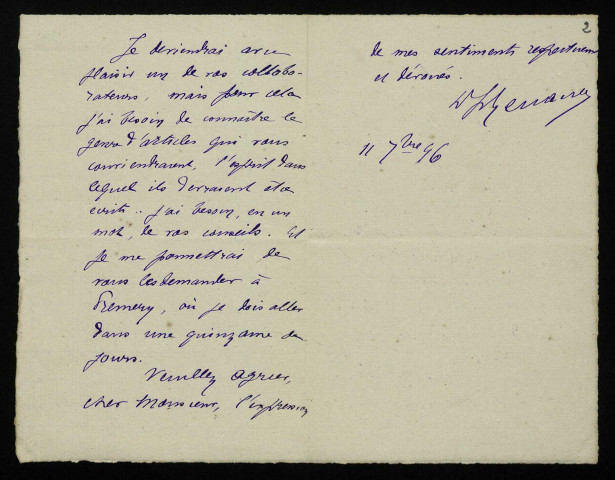 Je deviendrai avec
plaisir un de vos collabo-
rateurs, mais pour cela
j'ai besoin de connaître le
genre d'articles qui vous
conviendraient, l'esprit dans
lequel ils devraient être
écrits.. j'ai besoin, en un
mot, de vos conseils. Et
je me permettrai de
vous les demander à
Premery, où je dois aller
dans une quinzaine de
jours.
Veuillez agréer,
cher Monsieur, l'expression
2
de mes sentiments respectueux
et dévoués.
11 7bre 96